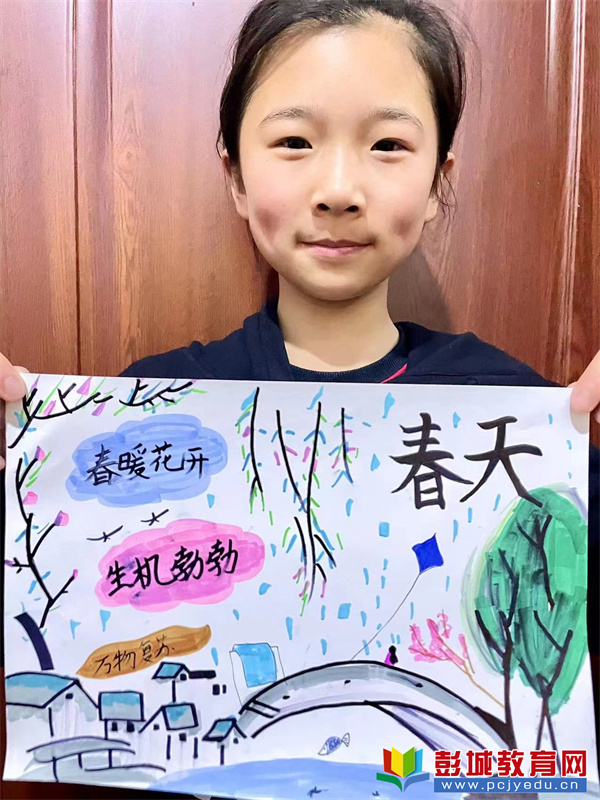 春天
春暖花开
生机勃勃
万物复苏
彭城教育网
www.pcjyedu.cn